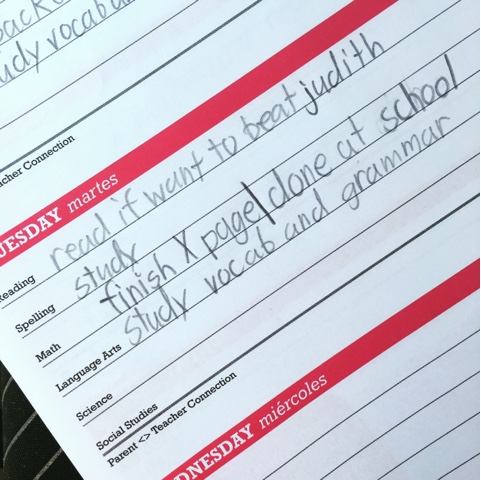 study vocab
Teacher Connection
TUESDAY martes
Reading read if want to beat judith
Spelling study
Math finish X page | done at school
Language Arts study vocab and grammar
Science
Social Studies
Parent <> Teacher Connection
WEDNESDAY miércoles